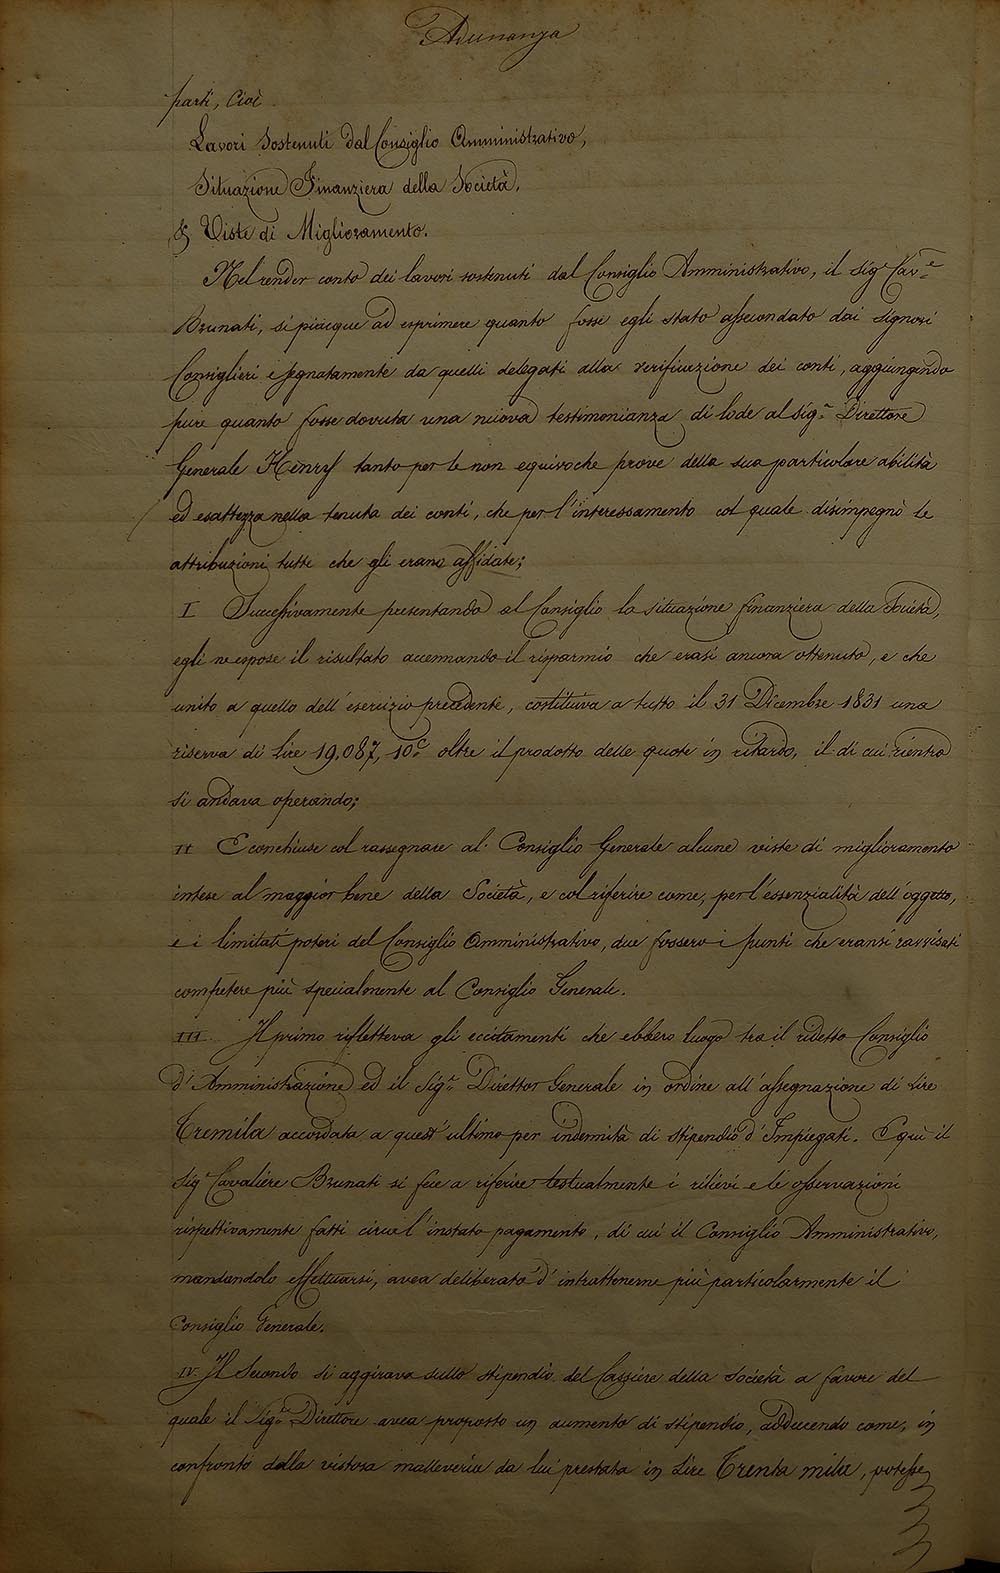 Adunanza
parti, Cioè
Lavori Sostenuti dal Consiglio Amministrativo,
Situazione Finanziera della Società,
& Viste di Miglioramento.
Nel render conto dei lavori sostenuti dal Consiglio Amministrativo, il Sigr Cave
Brunati, si piacque ad esprimere quanto fosse egli stato assecondato dai Signori
Consiglieri e segnatamente da quelli delegati alla verificazione dei conti, aggiungendo
pure quanto fosse dovuta una nuova testimonianza di lode al Sigr Direttore
Generale Henry tanto per le non equivoche prove della sua particolare abilità
ed esattezza nella tenuta dei conti, che per l'interessamento col quale disimpegnò le
attribuzioni tutte che gli erano affidate;
I Successivamente presentando al Consiglio la situazione finanziera della Società,
egli ne espose il risultato accennando il risparmio che erasi ancora ottenuto, e che
unito a quello dell'esercizio precedente, costituiva a tutto il 31 Dicembre 1831 una
riserva di Lire 19,087, 10c oltre il prodotto delle quote in ritardo, il di cui rientro
si andava operando;
II E conchiuse col rassegnare al Consiglio Generale alcune viste di miglioramento
intese al maggior bene della Società, e col riferire come, per l'essenzialità dell'oggetto,
e i limitati poteri del Consiglio Amministrativo, due fossero i punti che eransi ravvisati
competere più specialmente al Consiglio Generale.
III Il primo rifletteva gli eccitamenti che ebbero luogo tra il ridetto Consiglio
d'Amministrazione ed il Sigr Direttor Generale in ordine all'assegnazione di Lire
Tremila accordata a quest'ultimo per indennità di stipendio d'Impiegati. E qui il
Sigr Cavaliere Brunati si fece a riferire testualmente i rilievi e le osservazioni
rispettivamente fatti circa l'instato pagamento, di cui il Consiglio Amministrativo,
mandandolo effettuarsi, avea deliberato d'intrattenerne più particolarmente il
Consiglio Generale.
IV. Il Secondo si aggirava sullo stipendio del Cassiere della Società a favore del
quale il Sigr Direttore avea proposto un aumento di stipendio, adducendo come, in
confronto della vistosa malleveria da lui prestata in Lire Trenta mila, potesse